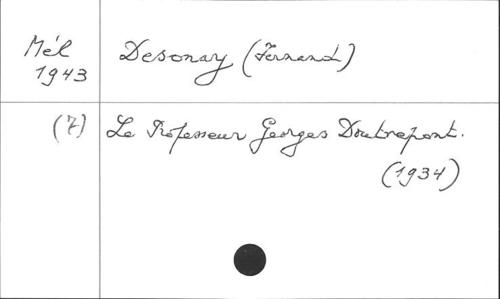 Mél
1943
Desonay (Fernand)
(7)
Le Professeur Georges Doutrepont.
(1934)